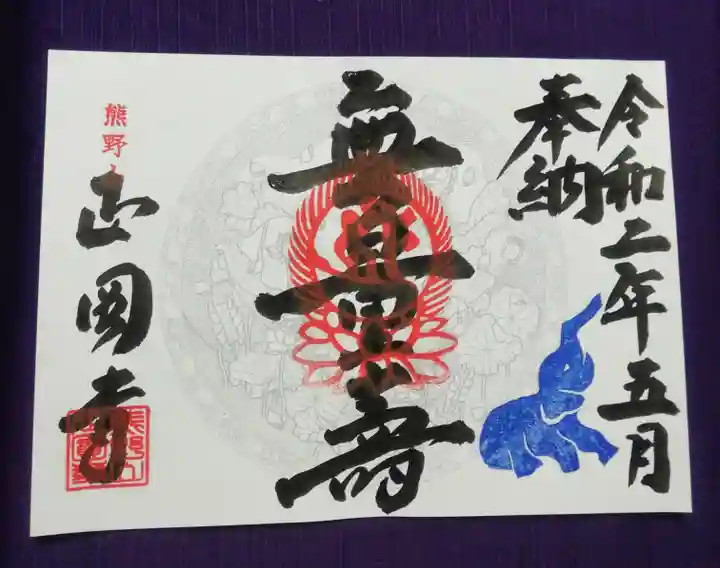 令和二年五月
奉納
無量壽
熊野
山圀寺